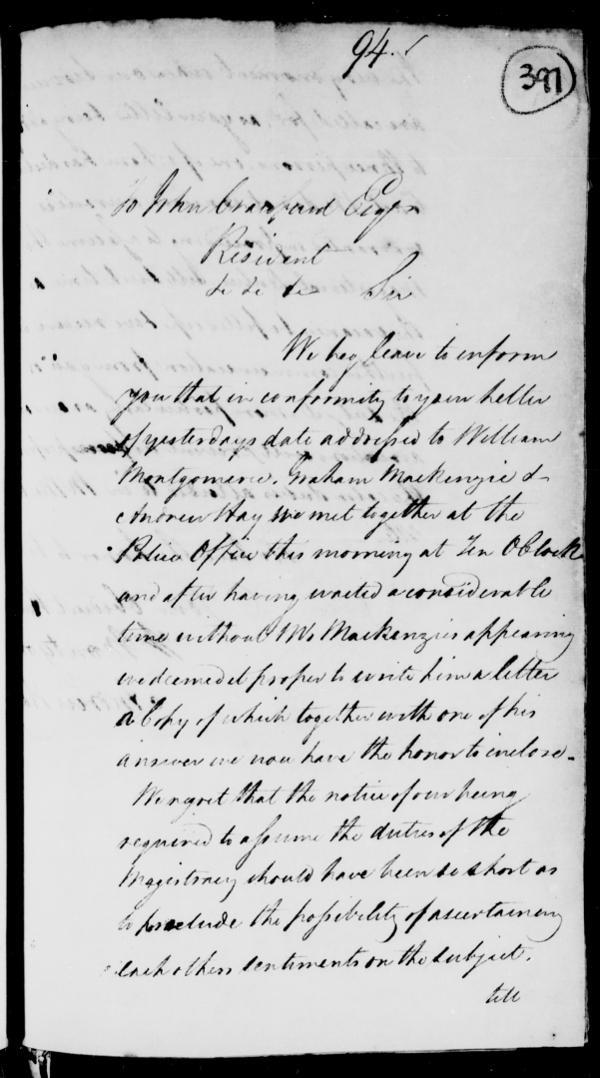 94.
397
To John Crawfurd Esqr
Resident
&c &c &c Sir
We beg leave to inform
you that in conformity to your letter
of yesterdays date addressed to William
Montgomerie, Graham Mackenzie &
Andrew Hay we met together at the
Police Office this morning at Ten OClock
and after having waited a considerable
time without Mr Mackenzies appearing
we deemed it proper to write him a letter
a Copy of which together with one of his
answer we now have the honor to inclose.
We regret that the notice of our being
required to assume the duties of the
Magistracy should have been so short as
to preclude the possibility of ascertaining
each others sentiments on the subject.
till